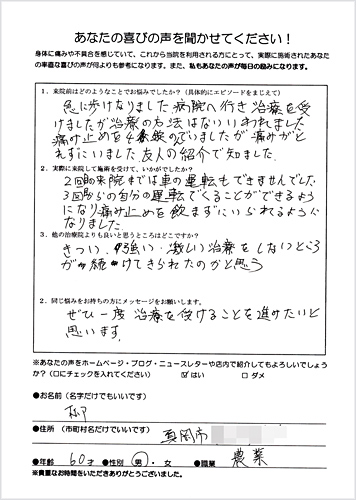 あなたの喜びの声を聞かせてください!
身体に痛みや不具合を感じていて、これから当院を利用される方にとって、実際に施術されたあなた
の率直な喜びの声が何よりも参考になります。また、私もあなたの声が毎日の励みになります。
1．来院前はどのようなことでお悩みでしたか？（具体的にエピソードをまじえて）
急に歩けなりました 病院へ行き治療を受
けましたが治療の方法はないいわれました
痛み止めを4錠のでいましたが痛みがと
れずにいました 友人の紹介で知ました。
2．実際に来院して施術を受けて、いかがでしたか？
2回目の来院までは車の運転もできませんでした
3回目からの自分の運転でくることができるよう
になり痛み止めを飲まずにいられるように
なりました
3．他の治療院よりも良いと思うところはどこですか？
きつい、強い・激しい治療をしないところ
が 続けてきられたのかと思う
2．同じ悩みをお持ちの方にメッセージをお願いします。
ぜひ一度 治療を受けることを進めたいと
思います。
※あなたの声をホームページ・ブログ・ニュースレターや店内で紹介してもよろしいでしょう
か？（□にチェックを入れてください） ☑ はい □ ダメ
●お名前（名字だけでもいいです）
柳
●住所 （市町村名だけでいいです）
真岡市
●年齢 60才 ●性別 男・女 ●職業 農業
※貴重なお時間をいただきありがとうございました。